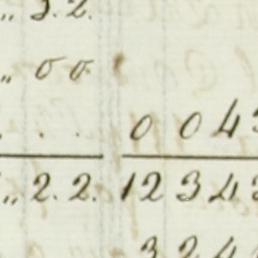 „ 3. 2.
„ 0 0.
. . . 0 0 4 3
„ 2. 2. 1 2 3 4 3
3 2 4